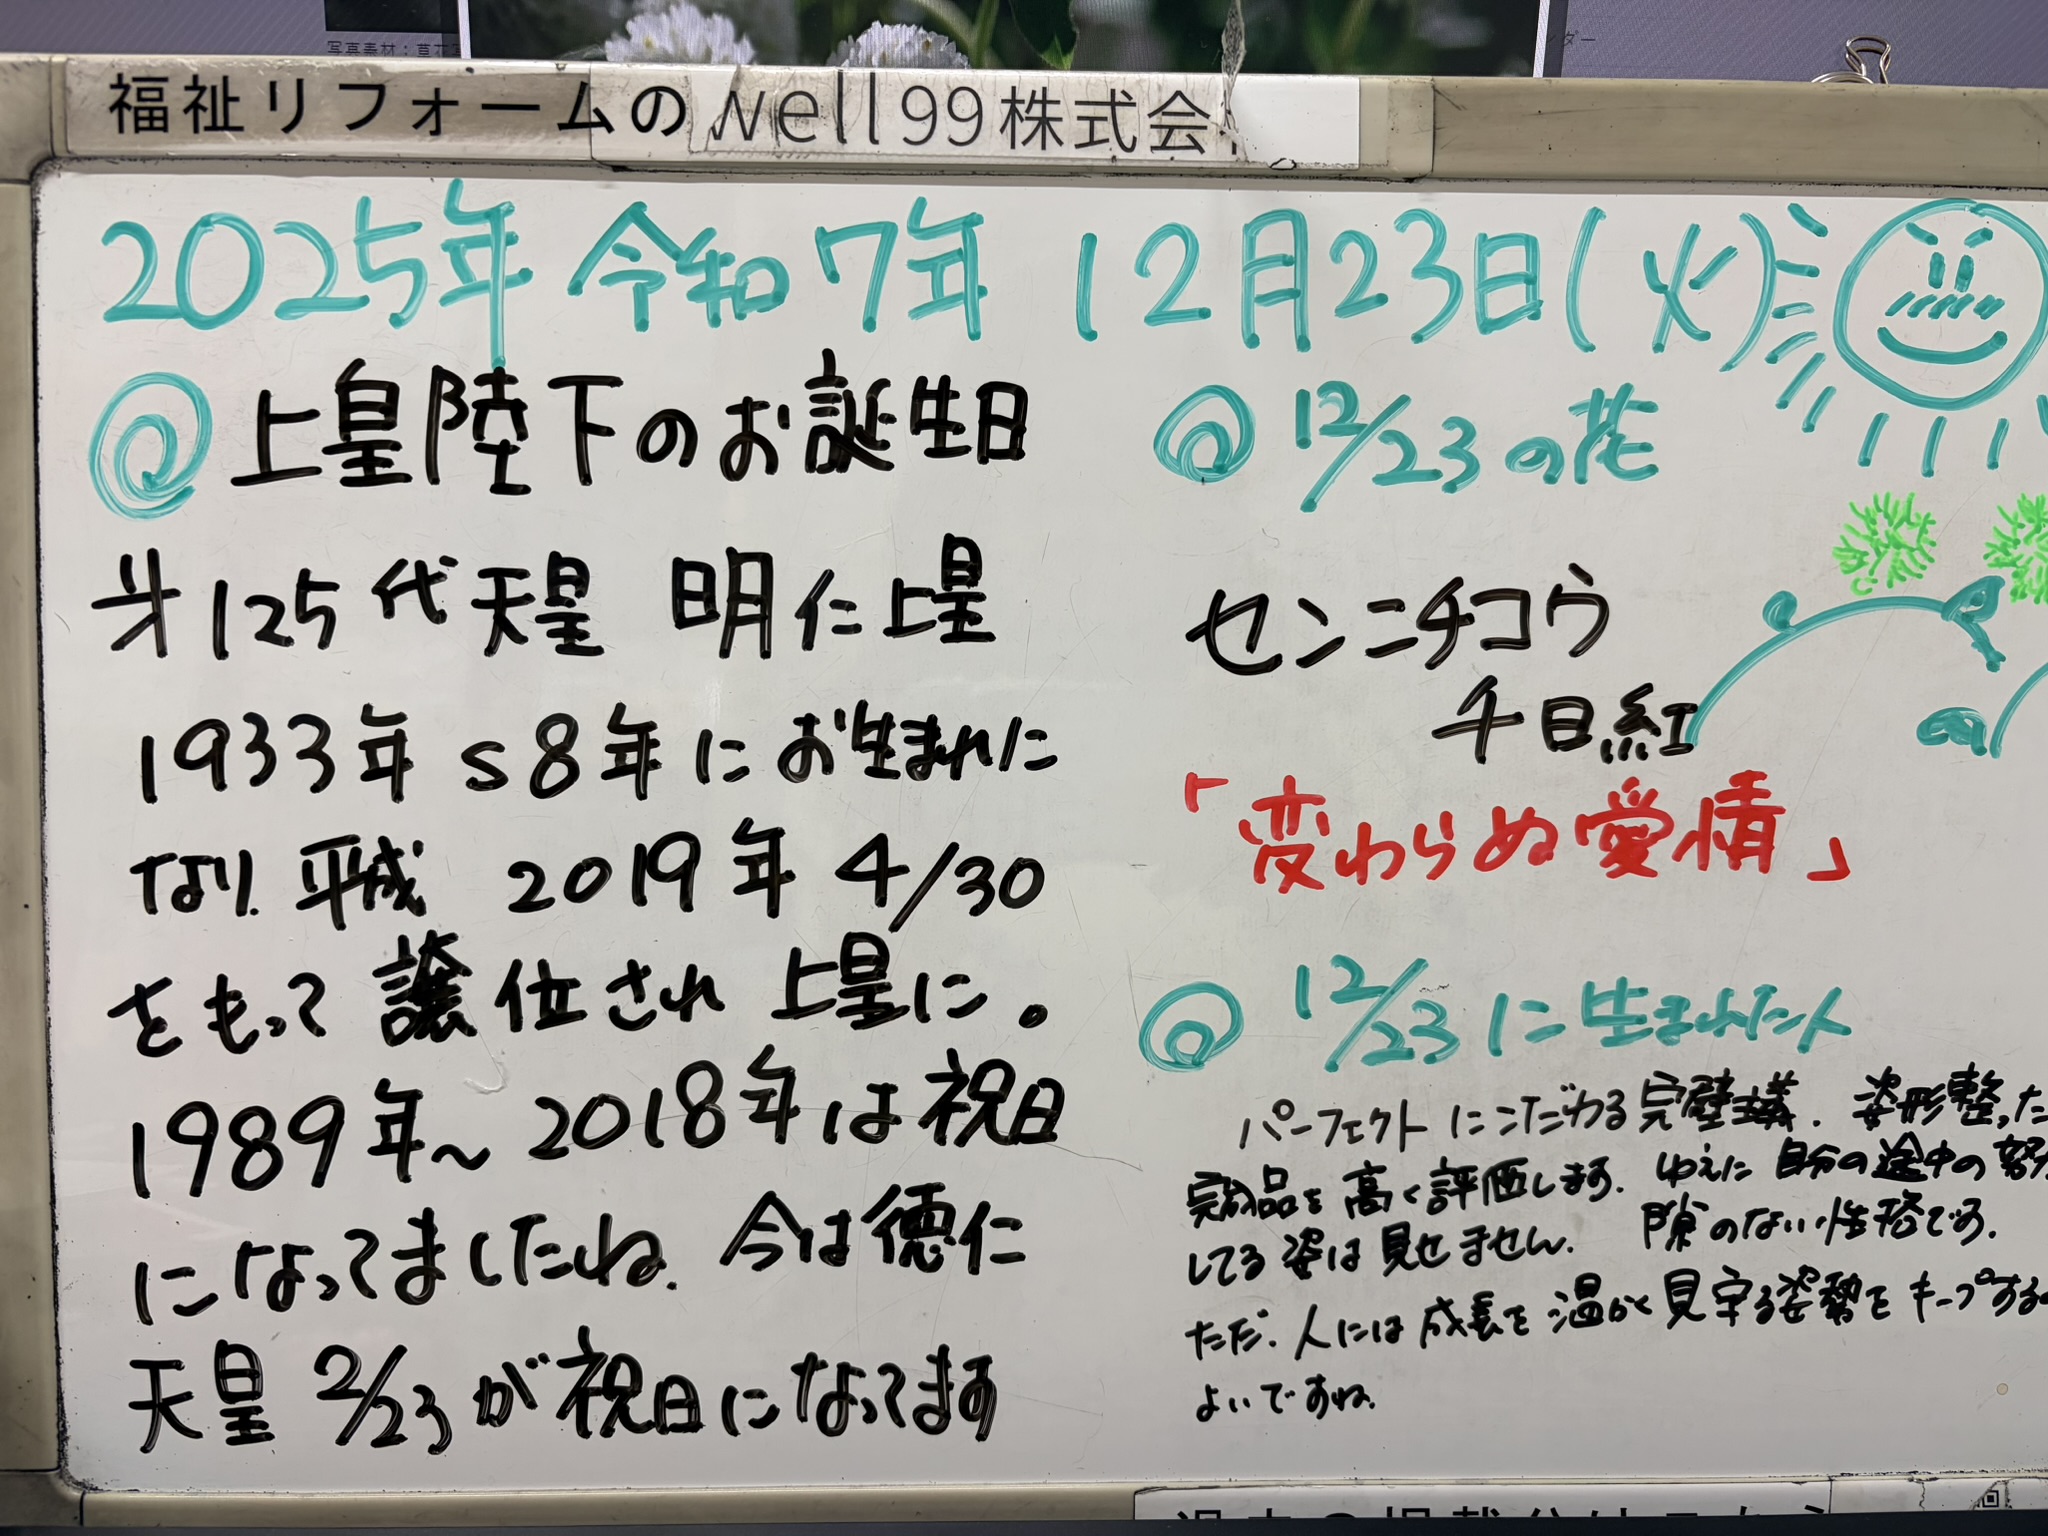 写真素材：草花
ンダー
福祉リフォームのwell99株式会
2025年 令和7年 12月23日(火)
@ 上皇陛下のお誕生日
㐧125代天皇 明仁上皇
1933年 S8年にお生まれに
なり. 平成 2019年 4/30
をもって 譲位され 上皇に。
1989年〜2018年は祝日
になってましたね. 今は徳仁
天皇 2/23が祝日になってます
@ 12/23の花
センニチコウ
千日紅
「変わらぬ愛情」
@ 12/23に生まれた人
パーフェクトにこだわる完璧主義. 姿形整った
完成品を高く評価します. ゆえに自分の途中の努力
してる姿は見せません. 隙のない性格です.
ただ. 人には成長を温かく見守る姿勢をキープする
よいですね.